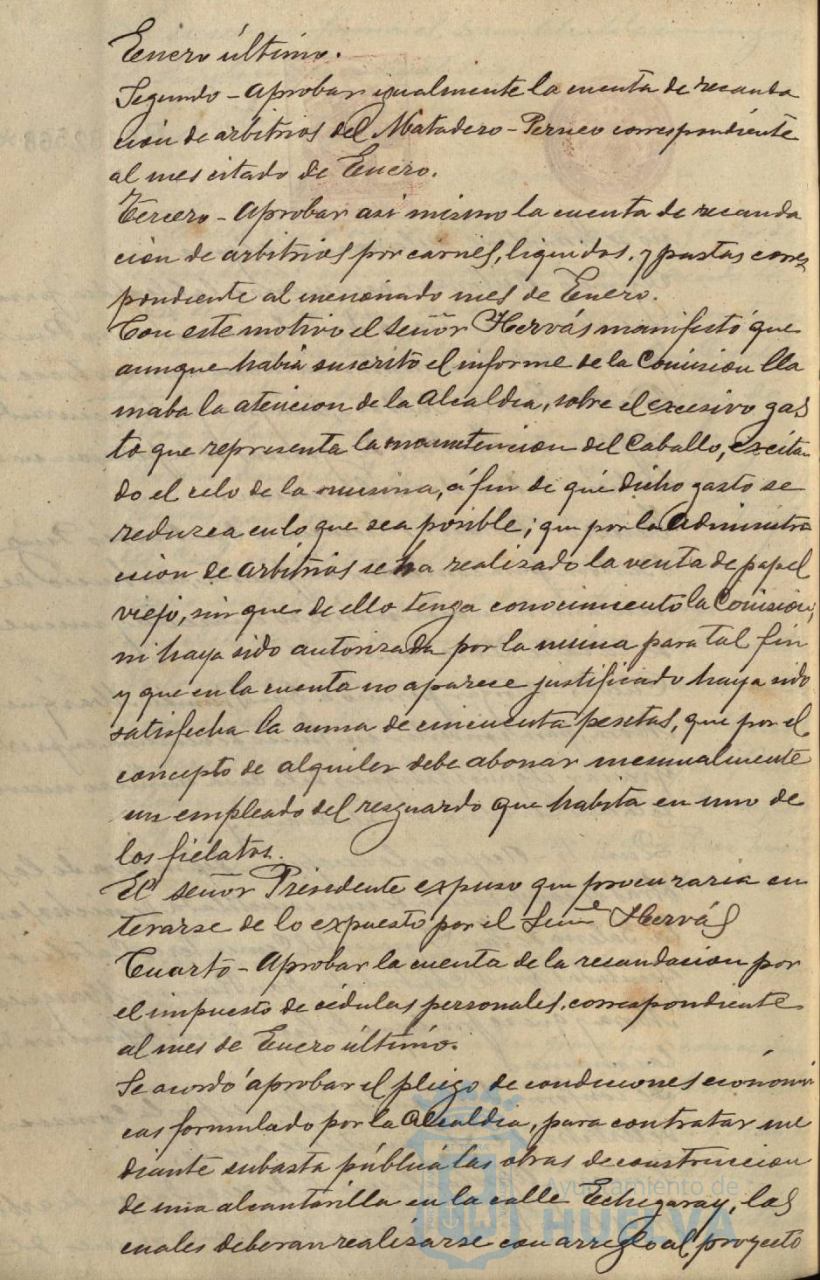 Enero último.
Segundo - Aprobar igualmente la cuenta de recauda
ción de arbitrios del Matadero - Perneo correspondiente
al mes citado de Enero.
Tercero - Aprobar asi mismo la cuenta de recauda
cion de arbitrios por carnes, liquidos, y pastas corres
pondiente al mencionado mes de Enero.
Con este motivo el Señor Hervás manifestó que
aunque habia suscrito el informe de la Comision lla
maba la atencion de la Alcaldia, sobre el excesivo gas
to que representa la manutencion del Caballo, excitan
do el celo de la misma, á fin de que dicho gasto se
reduzca en lo que sea posible; que por la Administra
cion de arbitrios se ha realizado la venta de papel
viejo, sin que de ello tenga conocimiento la Comision,
ni haya sido autorizada por la misma para tal fin
y que en la cuenta no aparece justificado haya sido
satisfecha la suma de cincuenta pesetas, que por el
concepto de alquiler debe abonar mensualmente
un empleado del resguardo que habita en uno de
los fielatos.
El señor Presidente expuso que procuraria en
terarse de lo expuesto por el Señor Hervás
Cuarto - Aprobar la cuenta de la recaudacion por
el impuesto de cédulas personales, correspondiente
al mes de Enero último.
Se acordó aprobar el pliego de condiciones económi
cas formulado por la Alcaldia, para contratar me
diante subasta pública las obras de construccion
de una alcantarilla en la calle Echegaray, las
cuales deberan realizarse con arreglo al proyecto
Ayuntamiento de
HUELVA